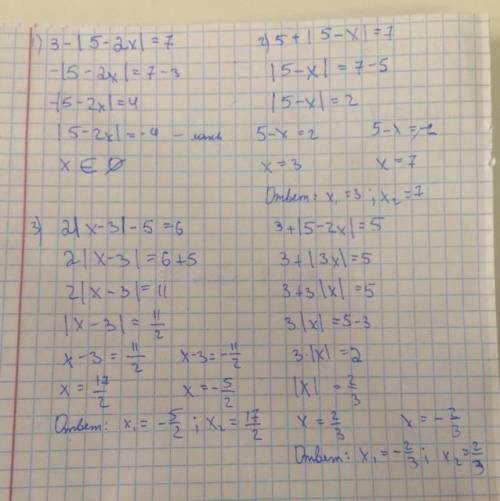 1) 3-|5-2x|=7
-|5-2x|=7-3
-|5-2x|=4
|5-2x|=-4 -
x∈∅
2) 5+|5-x|=7
|5-x|=7-5
|5-x|=2
5-x=2 5-x=-2
x=3 x=7
Ответ: x₁=3; x₂=7
3) 2|x-3|-5=6
2|x-3|=6+5
2|x-3|=11
|x-3|=11/2
x-3=11/2 x-3=-11/2
x=17/2 x=-5/2
Ответ: x₁=-5/2; x₂=17/2
3+|5-2x|=5
3+|3x|=5
3+3|x|=5
3|x|=5-3
3·|x|=2
|x|=2/3
x=2/3 x=-2/3
Ответ: x₁=-2/3; x₂=2/3